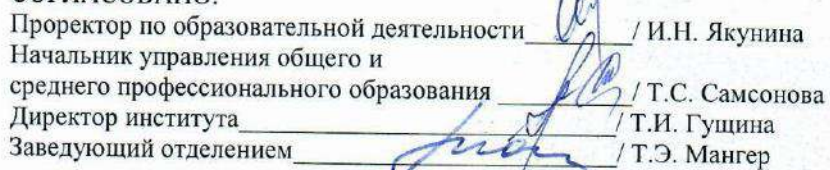 Проректор по образовательной деятельности / И.Н. Якунина
Начальник управления общего и
среднего профессионального образования / Т.С. Самсонова
Директор института / Т.И. Гущина
Заведующий отделением / Т.Э. Мангер